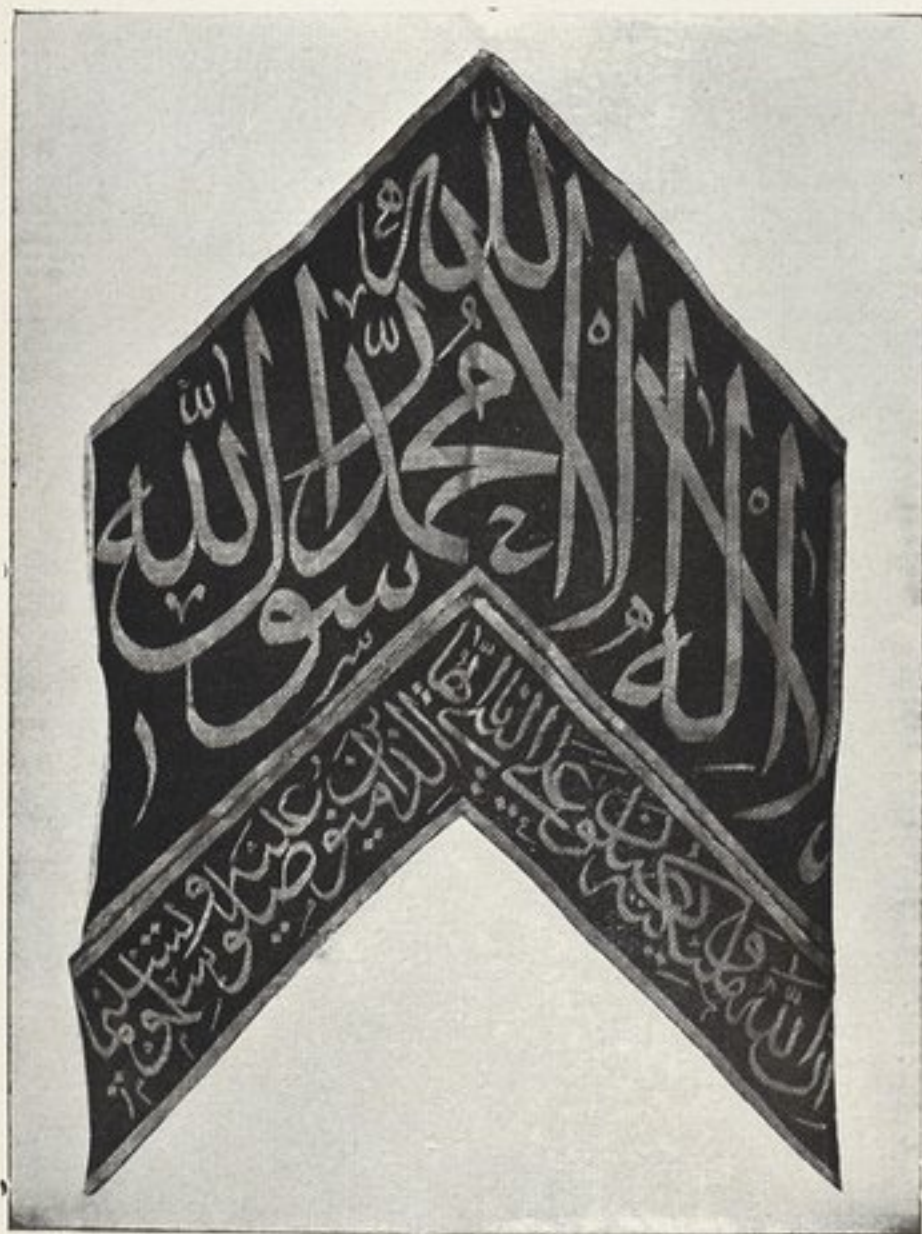 لا اله الا الله محمد رسول الله
ان الله وملئكته يصلون على النبي يايها
الذين امنو صلو عليه وسلمو تسليما